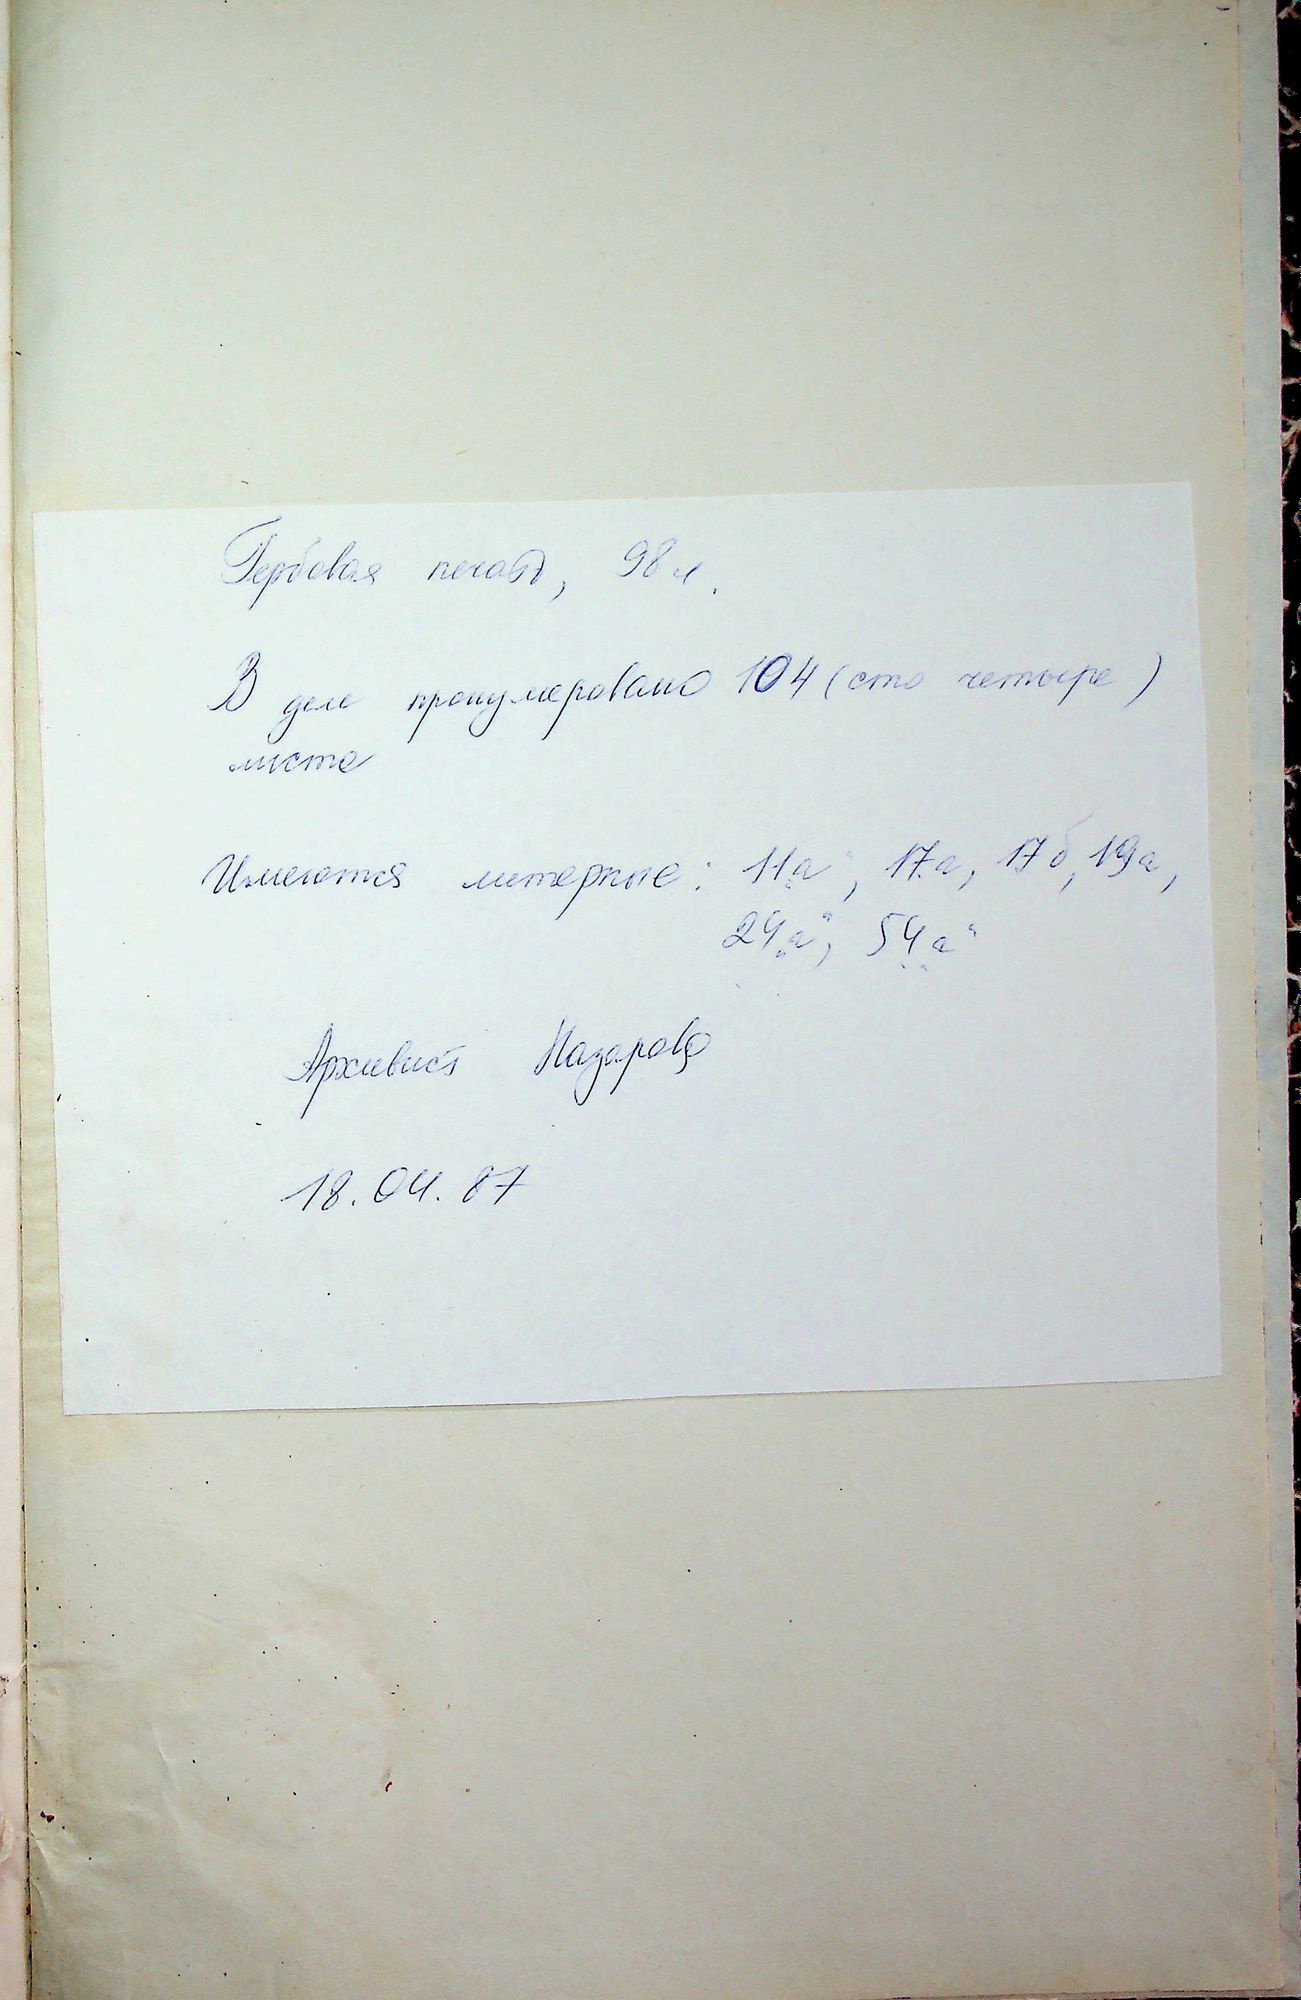 Гербовая печать, 98 л.
В деле пронумеровано 104 (сто четыре)
листа
Имеются литерные: 11„а“, 17а, 17б, 19а,
24„а“, 54„а“
Архивист Назарова
18.04.87